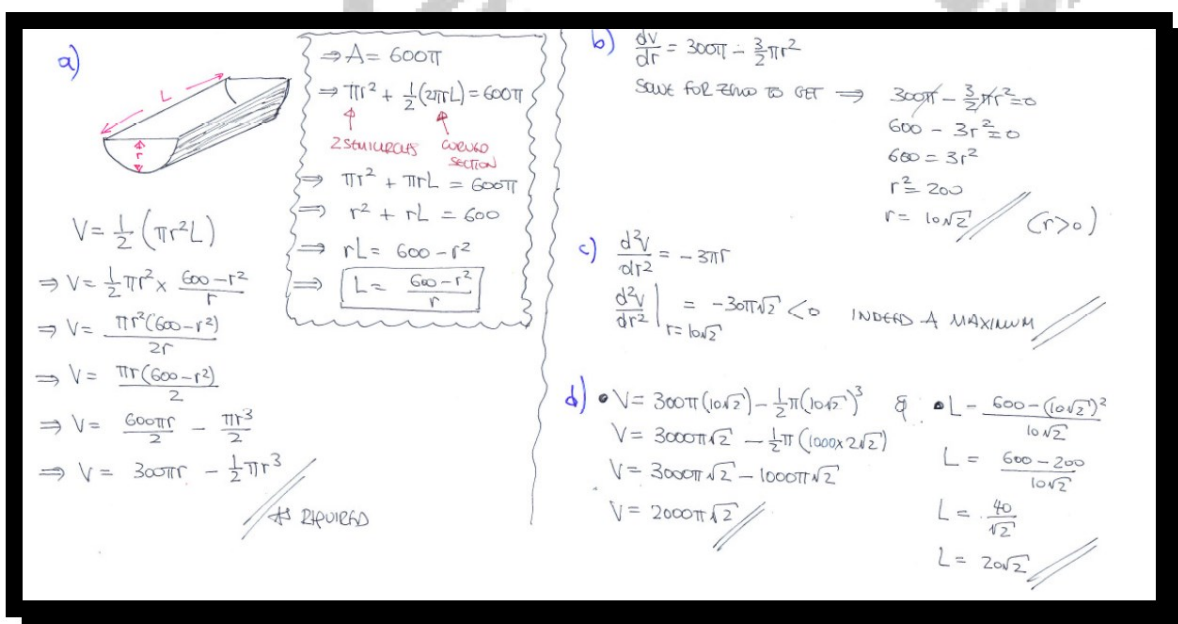 a)
L
r
V = 1/2 (πr²L)
⇒ V = 1/2 πr² × (600 - r²)/r
⇒ V = πr²(600 - r²)/2r
⇒ V = πr(600 - r²)/2
⇒ V = 600πr/2 - πr³/2
⇒ V = 300πr - 1/2 πr³
AS REQUIRED
⇒ A = 600π
⇒ πr² + 1/2 (2πrL) = 600π
2 SEMICIRCLES CURVED
SECTION
⇒ πr² + πrL = 600π
⇒ r² + rL = 600
⇒ rL = 600 - r²
⇒ L = (600 - r²)/r
b) dV/dr = 300π - 3/2 πr²
SOLVE FOR ZERO TO GET ⇒ 300π - 3/2 πr² = 0
600 - 3r² = 0
600 = 3r²
r² = 200
r = 10√2 (r>0)
c) d²V/dr² = -3πr
d²V/dr² |r=10√2 = -30π√2 < 0 INDEED A MAXIMUM
d) • V = 300π(10√2) - 1/2 π(10√2)³ & • L - (600 - (10√2)²)/10√2
V = 3000π√2 - 1/2 π(1000×2√2)
L = (600 - 200)/10√2
V = 3000π√2 - 1000π√2
L = 40/√2
V = 2000π√2
L = 20√2